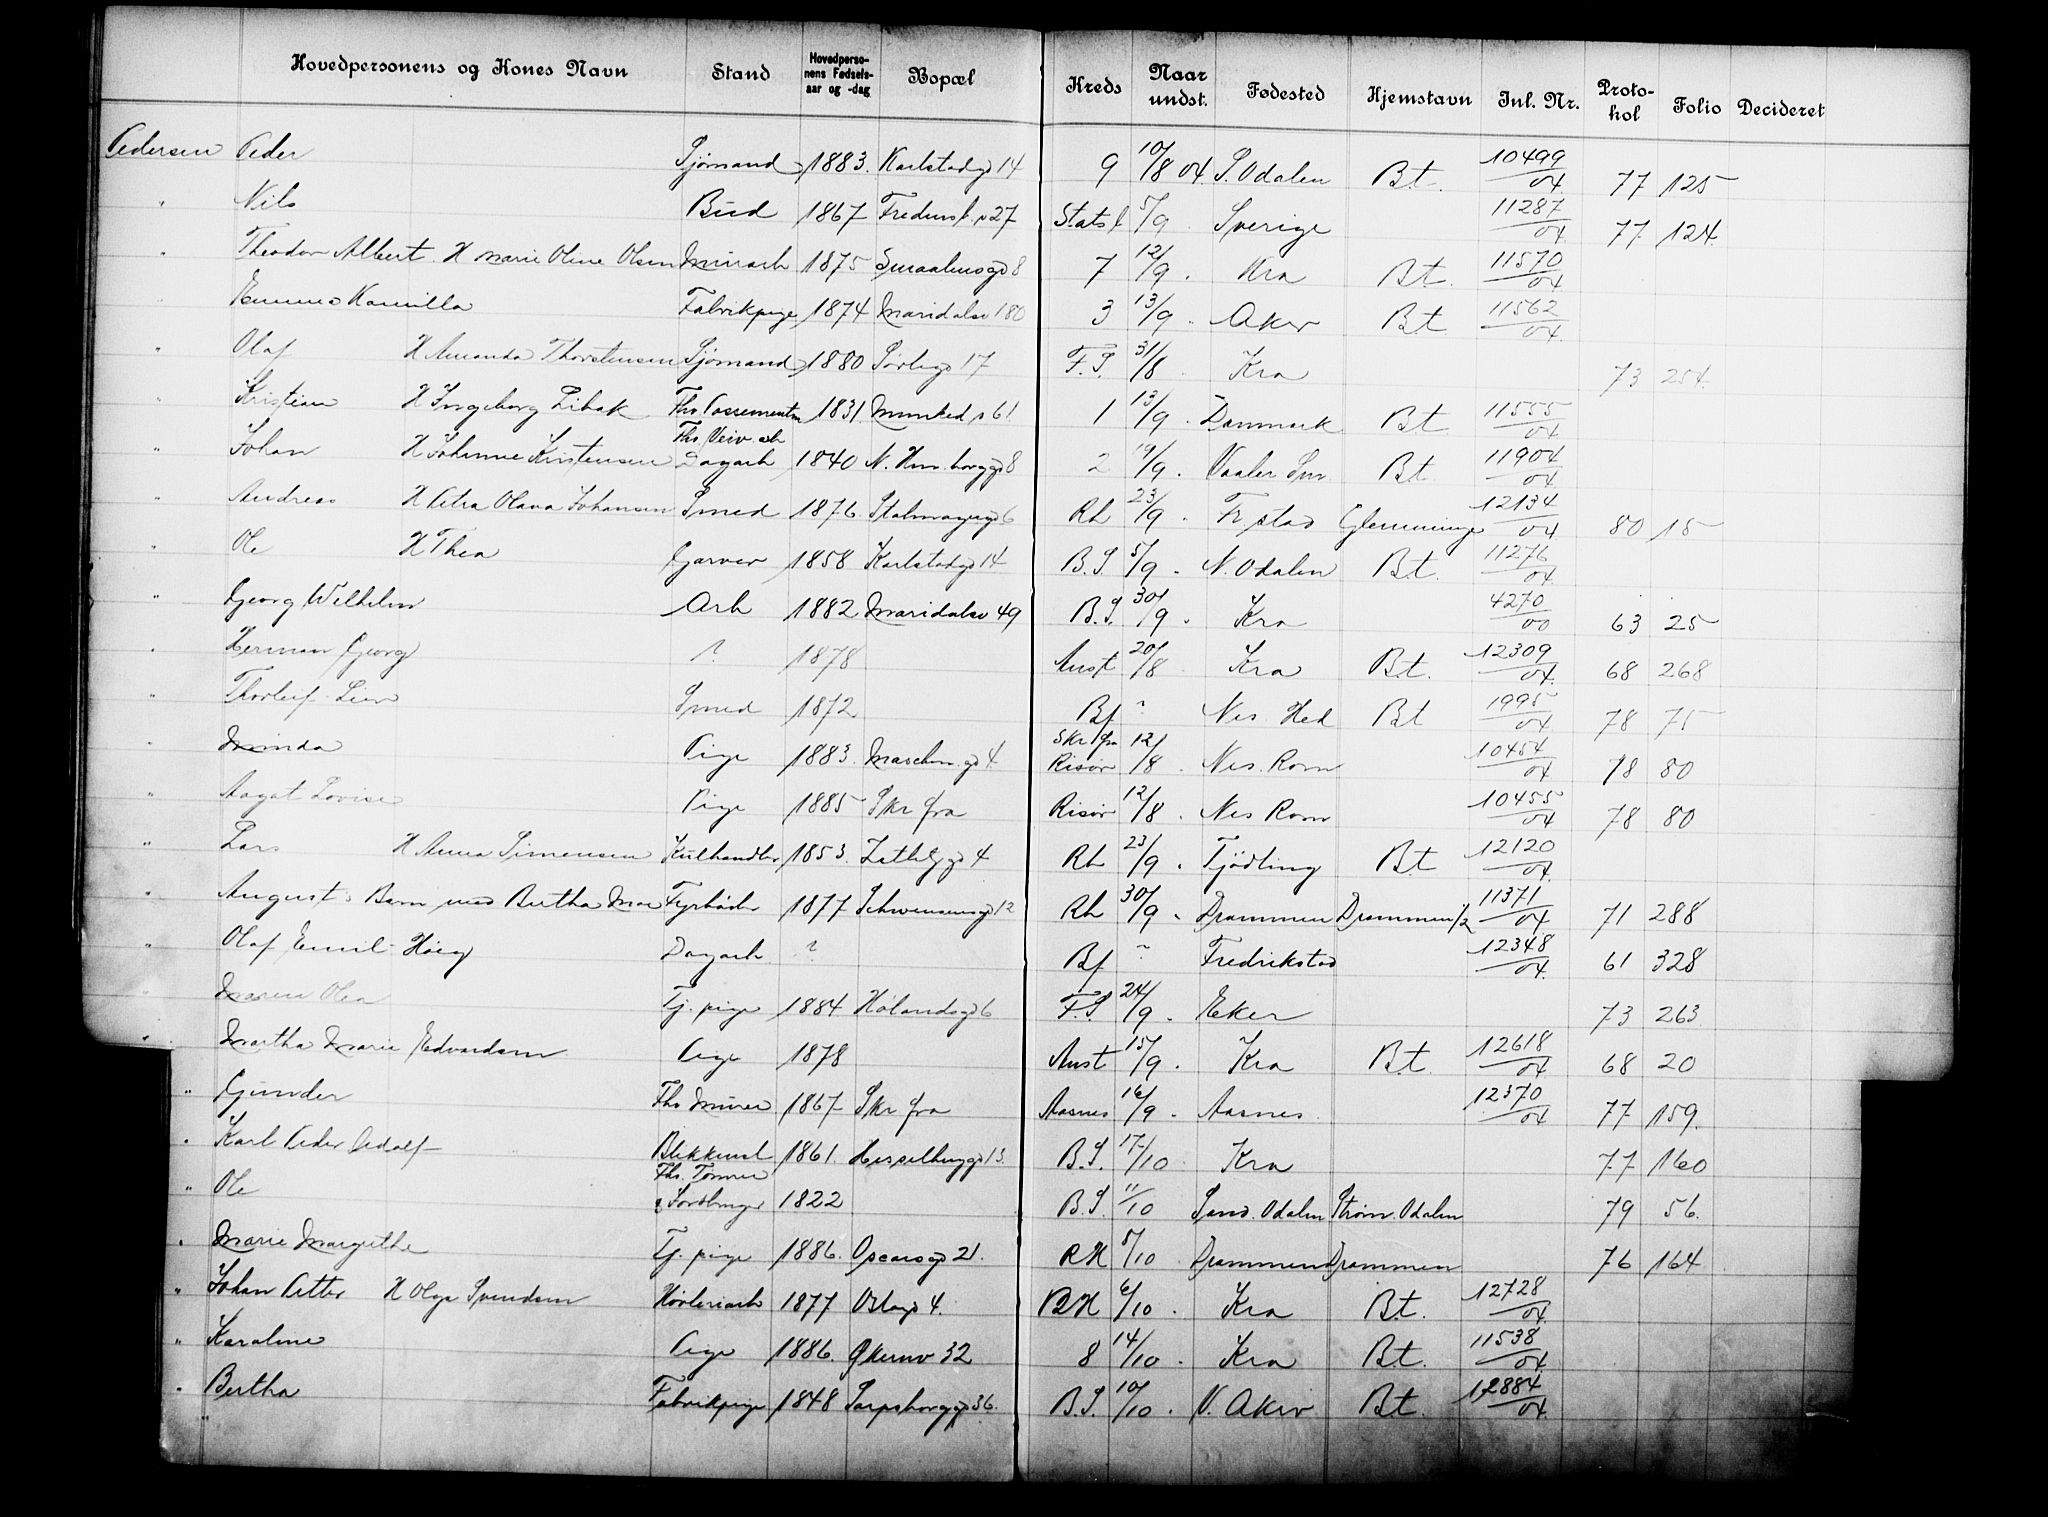 Hovedpersonens og Kones Navn Stand Hovedpersonens Fødselsaar og -dag Bopæl Kreds Naar undst. Fødested Hjemstavn Inl. Nr. Protokol Folio Decideret
Pedersen Peder Sjømand 1883 Karlstadgd 14 9 10/8 04 S. Odalen Bt. 10499/04 77 125
" Nils Bud 1867 27 Stats 5/9 Sverige 11287/04 77 124
" Theodor Albert H Marie Oline Olsen Murarb 1875 Smaalensgd 8 7 12/9 Kra Bt. 11570/04
" Emma Kamilla Fabrikpige 1874 Maridalsv 180 3 13/9 Aker Bt. 11562/04
" Olaf H Amanda Thorstensen Sjømand 1880 Sørligd 17 F.S. 31/8 Kra 73 254
" Kristian H Ingeborg 1831 Munked 61 1 13/9 Danmark Bt. 11555/04
" Johan H Johanne Kristensen Fhv. Dagarb 1840 8 2 19/9 Vaaler Sm Bt. 11904/04
" Andreas H Petra Olava Johansen Smed 1876 6 Rh 23/9 Fr.stad Glemminge 12134/04 80 15
" Ole H Thea Garver 1858 Karlstadgd 14 B.S. 5/9 N. Odalen Bt. 11276/04
" Georg Wilhelm Arb 1882 Maridalsv 49 B.S. 30/9 Kra 4270/00 63 25
" Herman Georg ? 1878 Anst 20/8 Kra Bt. 12309/04 68 268
" Thorleif Lien Smed 1872 Bf ? Nes. Hed Bt 1995/04 78 75
" Minda Pige 1883 4 Skr fra Risør 12/8 Nes. Rom 10454/04 78 80
" Aagot Lovise Pige 1885 Skr fra Risør 12/8 Nes Rom 10455/04 78 80
" Lars H Anna Simensen Kulhandler 1853 4 Rh 23/9 Tjødling Bt 12120/04
" August Barn med Bertha Fyrbøder 1877 Schwensensgd 12 Rh 30/9 Drammen Drammen 1/2 11371/04 71 288
" Olaf Emil Høeg Dagarb ? Bf ? Fredrikstad 12348/04 61 328
" Maren Olea Tj. pige 1884 Hølandsgd 6 F.S 24/9 Eker 73 263
" Martha Marie Edvardsen Pige 1878 Anst 15/9 Kra Bt. 12618/04 68 20
" Gunder Fhv Murer 1867 Skr fra Aasnes 16/9 Aasnes 12370/04 77 159
" Karl Peder Adolf 1861 Hesselbergd 13 B.S. 17/10 Kra 77 160
" Ole Fhv. Tømrer 1822 B.S. 11/10 Sand. Odalen Strøm. Odalen 79 56
" Marie Margrethe Tj. pige 1886 Oscarsgd 21 RH 5/10 Drammen Drammen 76 164
" Johan Petter H Olga Svendsen Høvleriarb 1877 Oslogd 4 RH 6/10 Kra Bt. 12728/04
" Karoline Pige 1886 Økernv 32 8 14/10 Kra Bt. 11538/04
" Bertha Fabrikpige 1848 Sarpsborggd 36 B.S. 10/10 V. Aker Bt. 12884/04